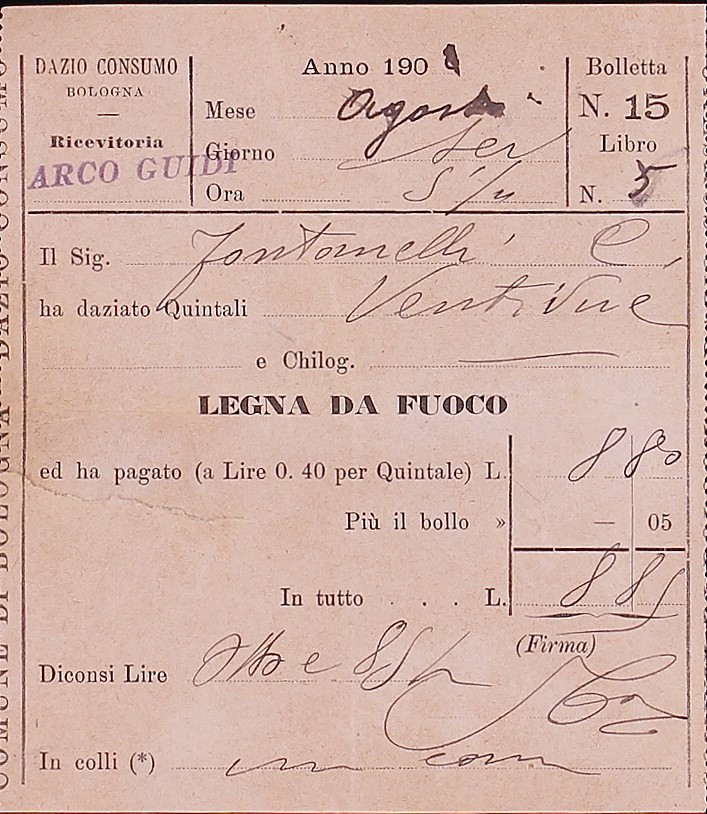 DAZIO CONSUMO
BOLOGNA
Ricevitoria
ARCO GUIDI
Anno 190
Mese Agosto
Giorno sei
Ora
Bolletta
N. 15
Libro
N. 5
Il Sig. Fontanelli C.
ha daziato Quintali Ventidue
e Chilog. —
LEGNA DA FUOCO
ed ha pagato (a Lire 0. 40 per Quintale) L. 8 80
Più il bollo » — 05
In tutto . . . L. 8 85
(Firma)
Diconsi Lire Otto e 85/
In colli (*) un carro
COMUNE DI BOLOGNA - DAZIO CONSUMO